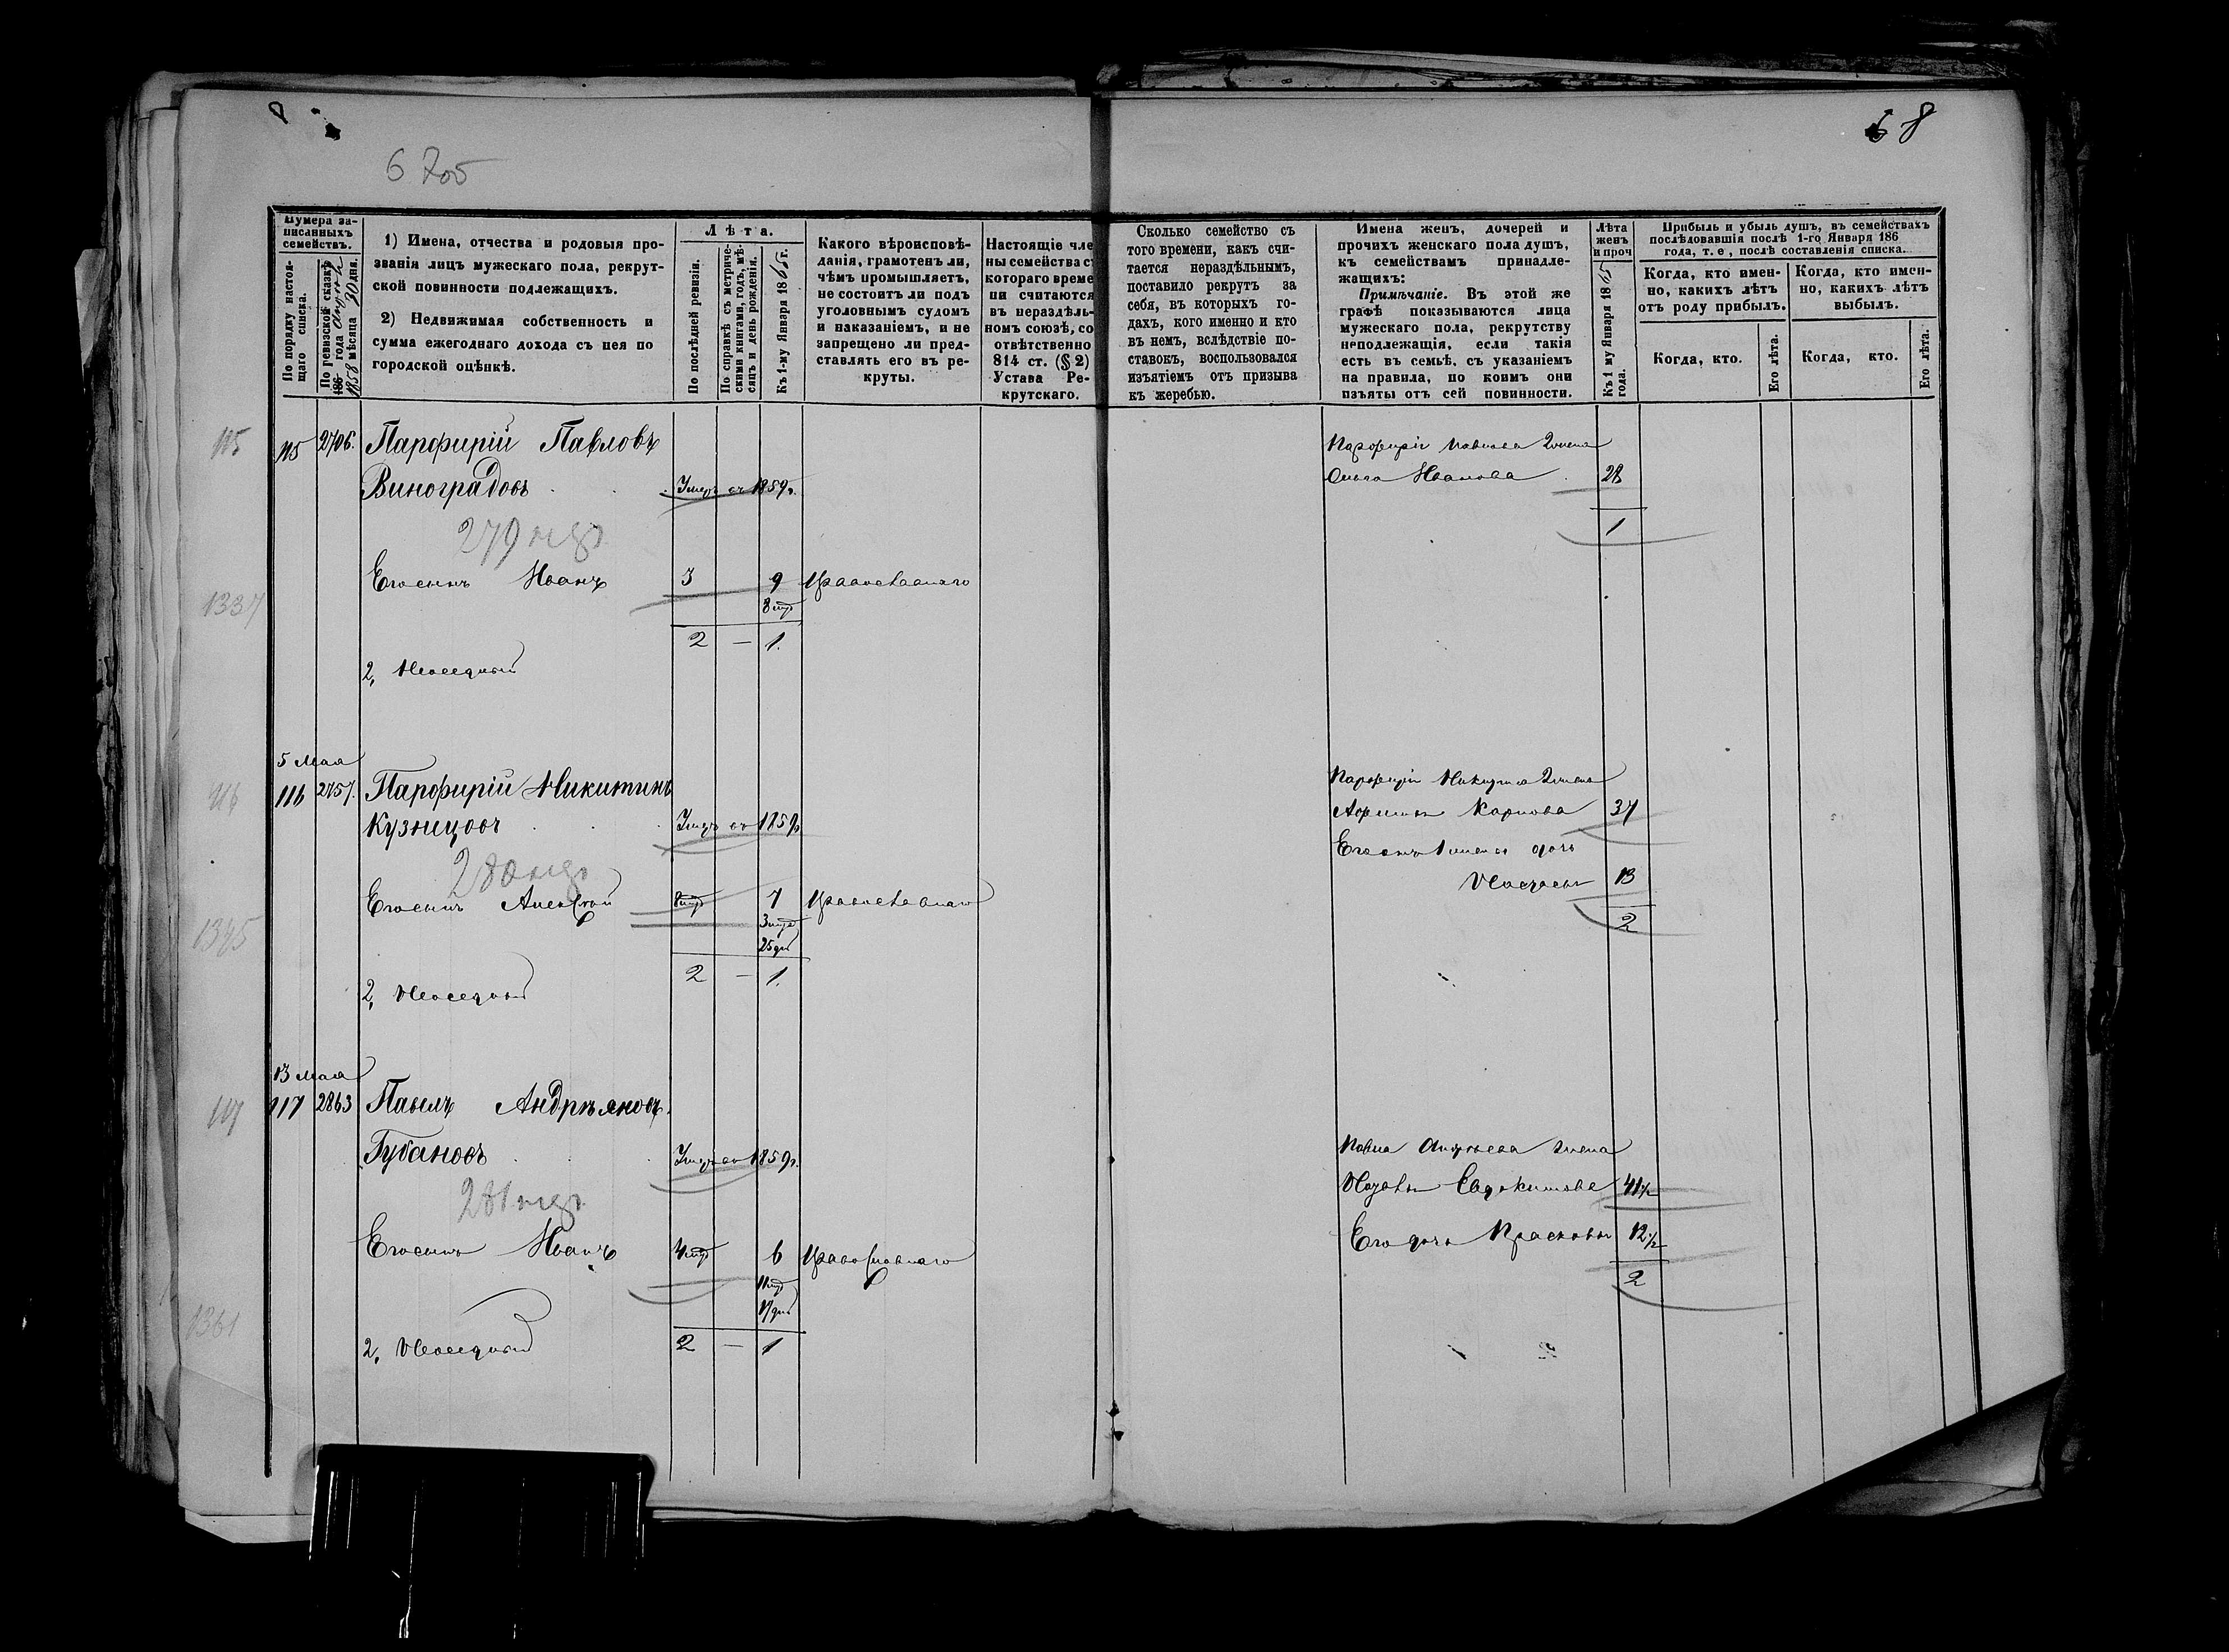 8
68
6 705
Нумера за-
писанныхъ
семействъ.
По порядку настоя-
щаго списка.
По ревизской сказкѣ
186 года
1858 мѣсяца 30 дня.
1) Имена, отчества и родовыя про-
званія лицъ мужескаго пола, рекрут-
ской повинности подлежащихъ.
2) Недвижимая собственность и
сумма ежегоднаго дохода съ нея по
городской оцѣнкѣ.
Лѣта.
По послѣдней ревизіи.
По справкѣ съ метриче-
скими книгами, годъ, мѣ-
сяцъ и день рожденія.
Къ 1-му Января 1865 г.
Какого вѣроисповѣ-
данія, грамотенъ ли,
чѣмъ промышляетъ,
не состоитъ ли подъ
уголовнымъ судомъ
и наказаніемъ, и не
запрещено ли пред-
ставлять его въ ре-
круты.
Настоящіе чле
ны семейства с
котораго време
ни считаются
въ нераздѣль-
номъ союзѣ, со
отвѣтственно
814 ст. (§ 2)
Устава Ре-
крутскаго.
Сколько семейство съ
того времени, какъ счи-
тается нераздѣльнымъ,
поставило рекрутъ за
себя, въ которыхъ го-
дахъ, кого именно и кто
въ немъ, вслѣдствіе по-
ставокъ, воспользовался
изъятіемъ отъ призыва
къ жеребью.
Имена женъ, дочерей и
прочихъ женскаго пола душъ,
къ семействамъ принадле-
жащихъ:
Примѣчаніе. Въ этой же
графѣ показываются лица
мужескаго пола, рекрутству
неподлежащія, если такія
есть въ семьѣ, съ указаніемъ
на правила, по коимъ они
изъяты отъ сей повинности.
Лѣта
женъ
и проч
Къ 1 му Января 1865
года.
Прибыль и убыль душъ, въ семействахъ
послѣдовавшія послѣ 1-го Января 186
года, т. е, послѣ составленія списка.
Когда, кто имен-
но, какихъ лѣтъ
отъ роду прибылъ.
Когда, кто имен-
но, какихъ лѣтъ
выбылъ.
Когда, кто.
Его лѣта.
Когда, кто.
Его лѣта.
115 115 2706. Парфирій Павловъ
Виноградовъ Умеръ въ 1859 г.
Парфирія Павлова 2 жена
Ольга Иванова 28
1
279
Его сынъ Иванъ 3 9 Православнаго
8
1337
2 — 1.
2,
5 Мая
116 116 2757. Парфирій Никитинъ
Кузнецовъ Умеръ въ 1859 г.
Парфирія Никитина 2 жена
Карпова 37
280
Его отъ 1 жены дочь
Настасья 13
2
Его сынъ Алексѣй 7 Православнаго
3
25 дн
1345
2 — 1.
2,
13 Мая
117 117 2863 Павелъ Андрѣяновъ
Губановъ Умеръ въ 1859 г.
Павла Андрѣева жена
Евдокимова 41 1/2
281
Его дочь Прасковья 12 1/2
2
Его сынъ Иванъ 6 Православнаго
11
17 дн
1361
2 — 1
2,